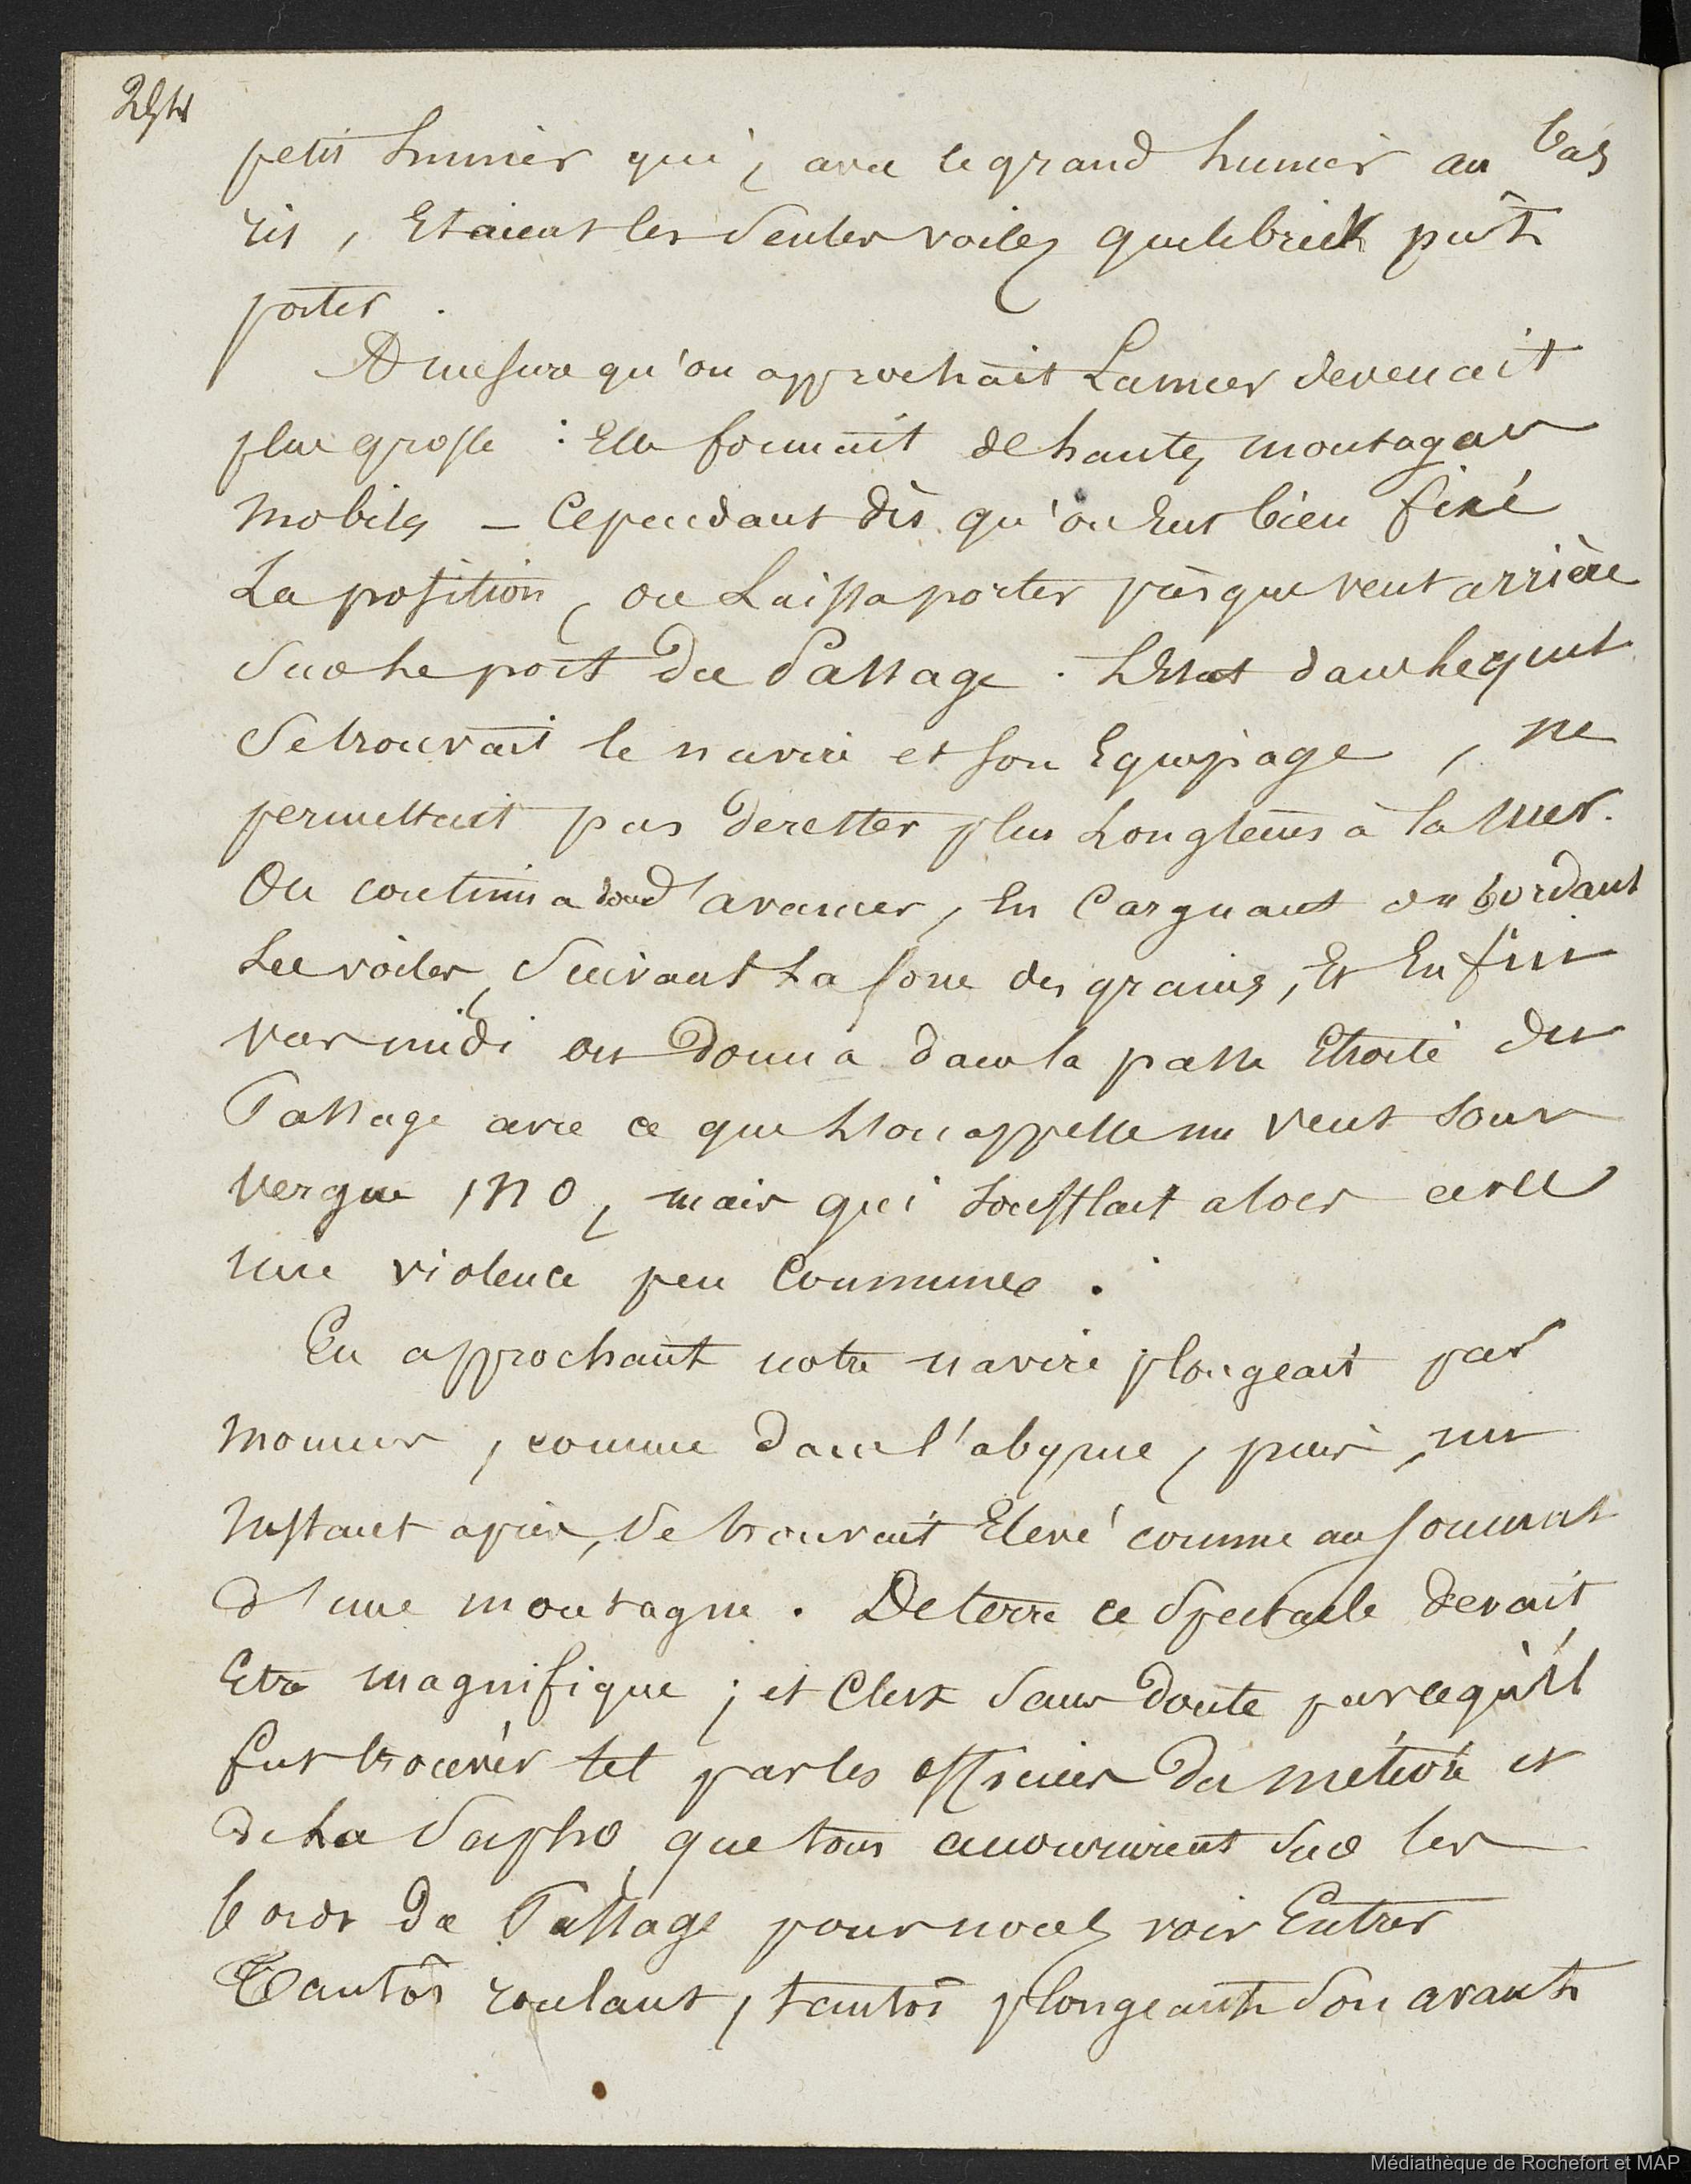 petit hunier qui, avec le grand hunier au bas
ris, Etaient les Seules voiles que le brick pût
porter.
A mesure qu'on approchait La mer devenait
plus grosse : Elle formait de hautes montagnes
mobiles – Cependant dès qu'on Eut bien fixé
La position, on Laissa porter presque vent arrière
Sur le port du Passage. L'Etat dans lequel
Se trouvait le navire et son Equipage, ne
permettait pas de rester plus Longtems à la mer.
On continua donc d'avancer, En Carguant ou bordant
Les voiles, Suivant La force des grains, Et Enfin
vers midi on Donna dans la passe Etroite du
Passage avec ce que l'on appelle un vent sous
vergue, NO, mais qui soufflait alors avec
une violence peu Commune.
En approchant notre navire plongeait par
momens, comme dans l'abyme, puis, un
Instant après, Se trouvait Elevé comme au sommet
d'une montagne. De terre ce Spectacle devait
Etre magnifique ; et C'est Sans Doute parcequ'il
fut trouvé tel par les officiers du météore et
de La Sapho que tous accoururent sur les
bords du Passage pour nous voir Entrer
Tantôt roulant, tantôt plongeant Son avant
Médiathèque de Rochefort et MAP